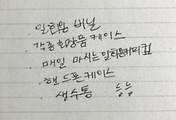 일회용 비닐
각종 화장품 케이스
· 매일 마시는 일회용커피컵
· 핸드폰 케이스
생수통 등등